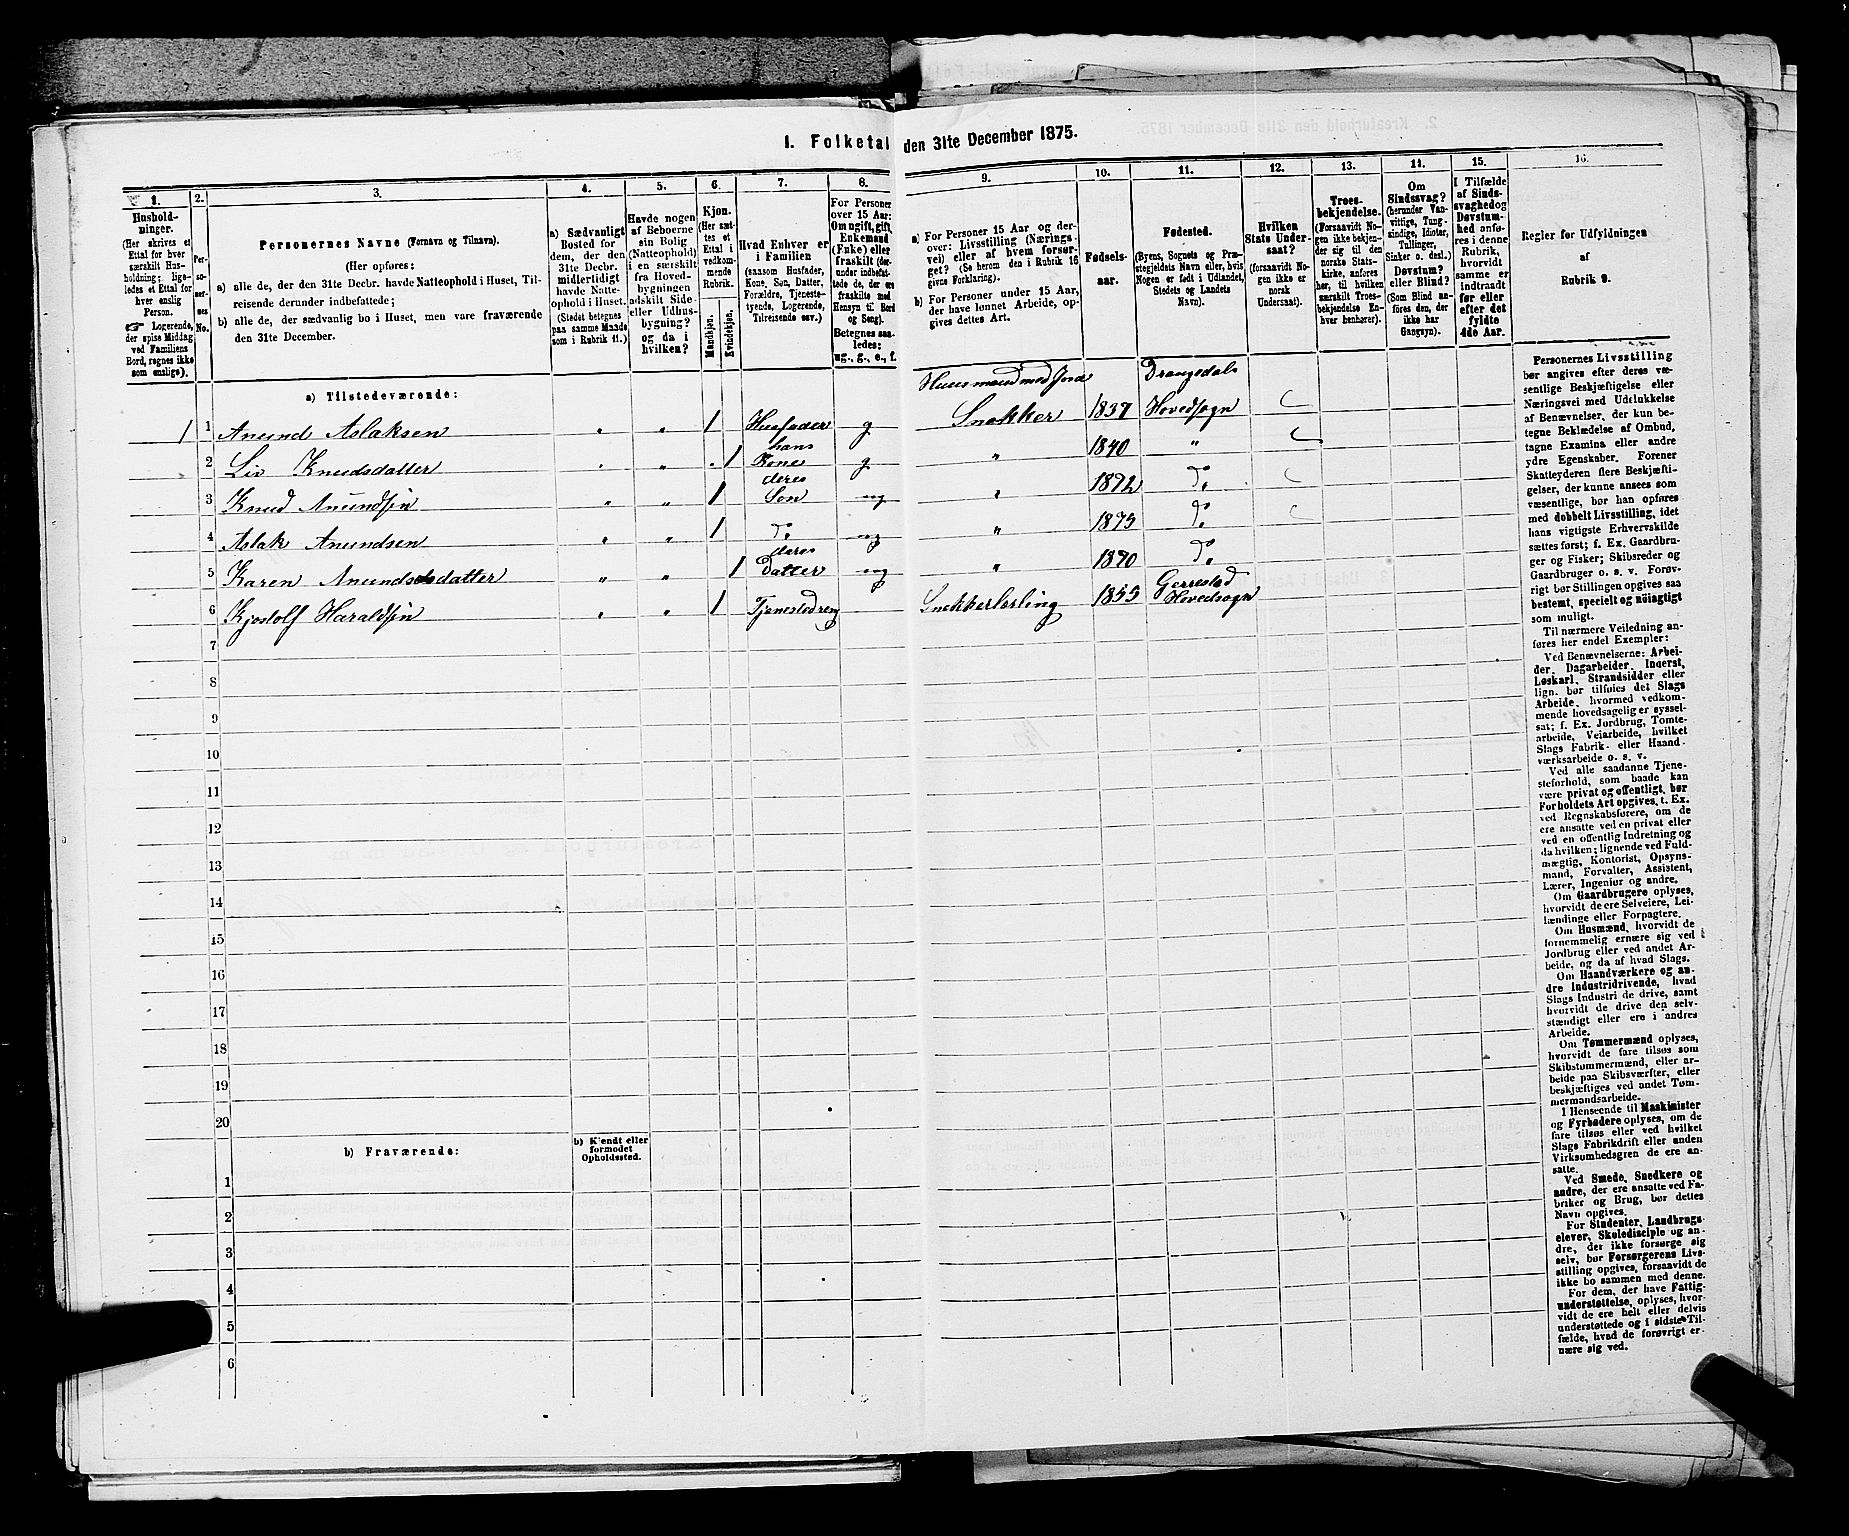 1. Folketal den 31te December 1875.
1.
Hushold-
ninger.
(Her skrives et
Ettal for hver
særskilt Hus-
holdning; lige-
ledes et Ettal for
hver enslig
Person.
☞ Logerende,
der spise Middag
ved Familiens
Bord, regnes ikke
som enslige).
2.
Per-
so-
ner-
nes
No.
3.
Personernes Navne (Fornavn og Tilnavn).
(Her opføres:
a) alle de, der den 31te Decbr. havde Natteophold i Huset, Til-
reisende derunder indbefattede;
b) alle de, der sædvanlig bo i Huset, men vare fraværende
den 31te December.
4.
a) Sædvanligt
Bosted for
dem, der den
31te Decbr.
midlertidigt
havde Natte-
ophold i Huset.
(Stedet betegnes
paa samme Maade
som i Rubrik 11.)
5.
Havde nogen
af Beboerne
sin Bolig
(Natteophold)
i en særskilt
fra Hoved-
bygningen
adskilt Side-
eller Udhus-
bygning?
og da i
hvilken?
6.
Kjøn.
(Her sæt-
tes et
Ettal i
vedkom-
mende
Rubrik.
Mandkjøn.
Kvindekjøn.
7.
Hvad Enhver er
i Familien
(saasom Husfader,
Kone, Søn, Datter,
Forældre, Tjeneste-
tyende, Logerende,
Tilreisende osv.)
8.
For Personer
over 15 Aar:
Om ugift, gift,
Enkemand
(Enke) eller
fraskilt (der-
under indbefat-
tede de, der ere
fraskilte med
Hensyn til Bord
og Seng).
Betegnes saa-
ledes:
ug., g., e., f.
9.
a) For Personer 15 Aar og der-
over: Livsstilling (Nærings-
vei) eller af hvem forsør-
get? (Se herom den i Rubrik 16
givne Forklaring).
b) For Personer under 15 Aar,
der have lønnet Arbeide, op-
gives dettes Art.
10.
Fødsels-
aar.
11.
Fødested.
(Byens, Sognets og Præ-
stegjeldets Navn eller, hvis
Nogen er født i Udlandet,
Stedets og Landets
Navn).
12.
Hvilken
Stats Under-
saat?
(forsaavidt No-
gen ikke er
norsk
Undersaat).
13.
Troes-
bekjendelse.
(Forsaavidt No-
gen ikke bekjen-
der sig til den
norske Stats-
kirke, anføres
her, til hvilken
særskilt Troes-
bekjendelse En-
hver henhører).
14.
Om
Sindssvag?
(herunder Van-
vittige, Tung-
sindige, Idioter,
Tullinger,
Sinker o. desl.)
Døvstum?
eller Blind?
(Som Blind an-
føres den, der
ikke har
Gangsyn).
15.
I Tilfælde
af Sinds-
svaghed og
Døvstum-
hed anfø-
res i denne
Rubrik,
hvorvidt
samme er
indtraadt
før eller
efter det
fyldte
4de Aar.
16.
Regler for Udfyldningen
af
Rubrik 9.
a) Tilstedeværende:
Huusmand med Jord Drangedals
1 1 Anund Aslaksen " " 1 Husfader g. Snekker 1837 Hovedsogn
2 Liv Knudsdatter " " 1 hans Kone g. " 1840 "
3 Knud Anundsen " " 1 deres Søn ug " 1872 Do
4 Aslak Anundsen " " 1 Do ug " 1875 Do
5 Karen Anundsdatter " " 1 deres Datter ug " 1870 Do
6 Kjostolf Haraldsen " " 1 Tjenestedreng Snekkerlærling 1855 Gerrestad Hovedsogn
7
8
9
10
11
12
13
14
15
16
17
18
19
20
b) Fraværende:
b) Kjendt eller
formodet
Opholdssted.
1
2
3
4
5
6
Personernes Livsstilling
bør angives efter deres væ-
sentlige Beskjæftigelse eller
Næringsvei med Udelukkelse
af Benævnelser, der kun be-
tegne Beklædelse af Ombud,
tagne Examina eller andre
ydre Egenskaber. Forener
Skatteyderen flere Beskjæfti-
gelser, der kunne ansees som
væsentlige, bør han opføres
med dobbelt Livsstilling, idet
hans vigtigste Erhvervskilde
sættes først; f. Ex. Gaardbru-
ger og Fisker; Skibsreder og
Gaardbruger o. s. v. Forøv-
rigt bør Stillingen opgives saa
bestemt, specielt og nøiagtigt
som muligt.
Til nærmere Veiledning an-
føres her endel Exempler:
Ved Benævnelserne: Arbei-
der, Dagarbeider, Inderst,
Løskarl, Strandsidder eller
lign. bør tilføies det Slags
Arbeide, hvormed vedkom-
mende hovedsagelig er syssel-
sat; f. Ex. Jordbrug, Tomte-
arbeide, Veiarbeide, hvilket
Slags Fabrik- eller Haand-
værksarbeide o. s. v.
Ved alle saadanne Tjene-
steforhold, som baade kan
være privat og offentligt, bør
Forholdets Art opgives, t. Ex.
ved Regnskabsførere, om de
ere ansatte ved en privat eller
ved en offentlig Indretning og
da hvilken; lignende ved Fuld-
mægtig, Kontorist, Opsyns-
mand, Forvalter, Assistent,
Lærer, Ingeniør og andre.
Om Gaardbrugere oplyses,
hvorvidt de ere Selveiere, Lei-
lændinge eller Forpagtere.
Om Husmænd, hvorvidt de
fornemmelig ernære sig ved
Jordbrug eller ved andet Ar-
beide, og da af hvad Slags.
Om Haandværkere og an-
dre Industridrivende, hvad
Slags Industri de drive, samt
hvorvidt de drive den selv-
stændigt eller ere i andres
Arbeide.
Om Tømmermænd oplyses,
hvorvidt de fare tilsøs som
Skibstømmermænd, eller ar-
beide paa Skibsværfter, eller
beskjæftiges ved andet Tøm-
mermandsarbeide.
I Henseende til Maskinister
og Fyrbødere oplyses, om de
fare tilsøs eller ved hvilket
Slags Fabrikdrift eller anden
Virksomhedsgren de ere an-
satte.
Ved Smede, Snedkere og
andre, der ere ansatte ved Fa-
briker og Brug, bør dettes
Navn opgives.
For Studenter, Landbrugs-
elever, Skoledisciple og an-
dre, der ikke forsørge sig
selv, bør Forsørgerens Livs-
stilling opgives, forsaavidt de
ikke bo sammen med denne.
For dem, der have Fattig-
understøttelse, oplyses, hvor-
vidt de ere helt eller delvis
understøttede og i sidste Til-
fælde, hvad de forøvrigt er-
nære sig ved.